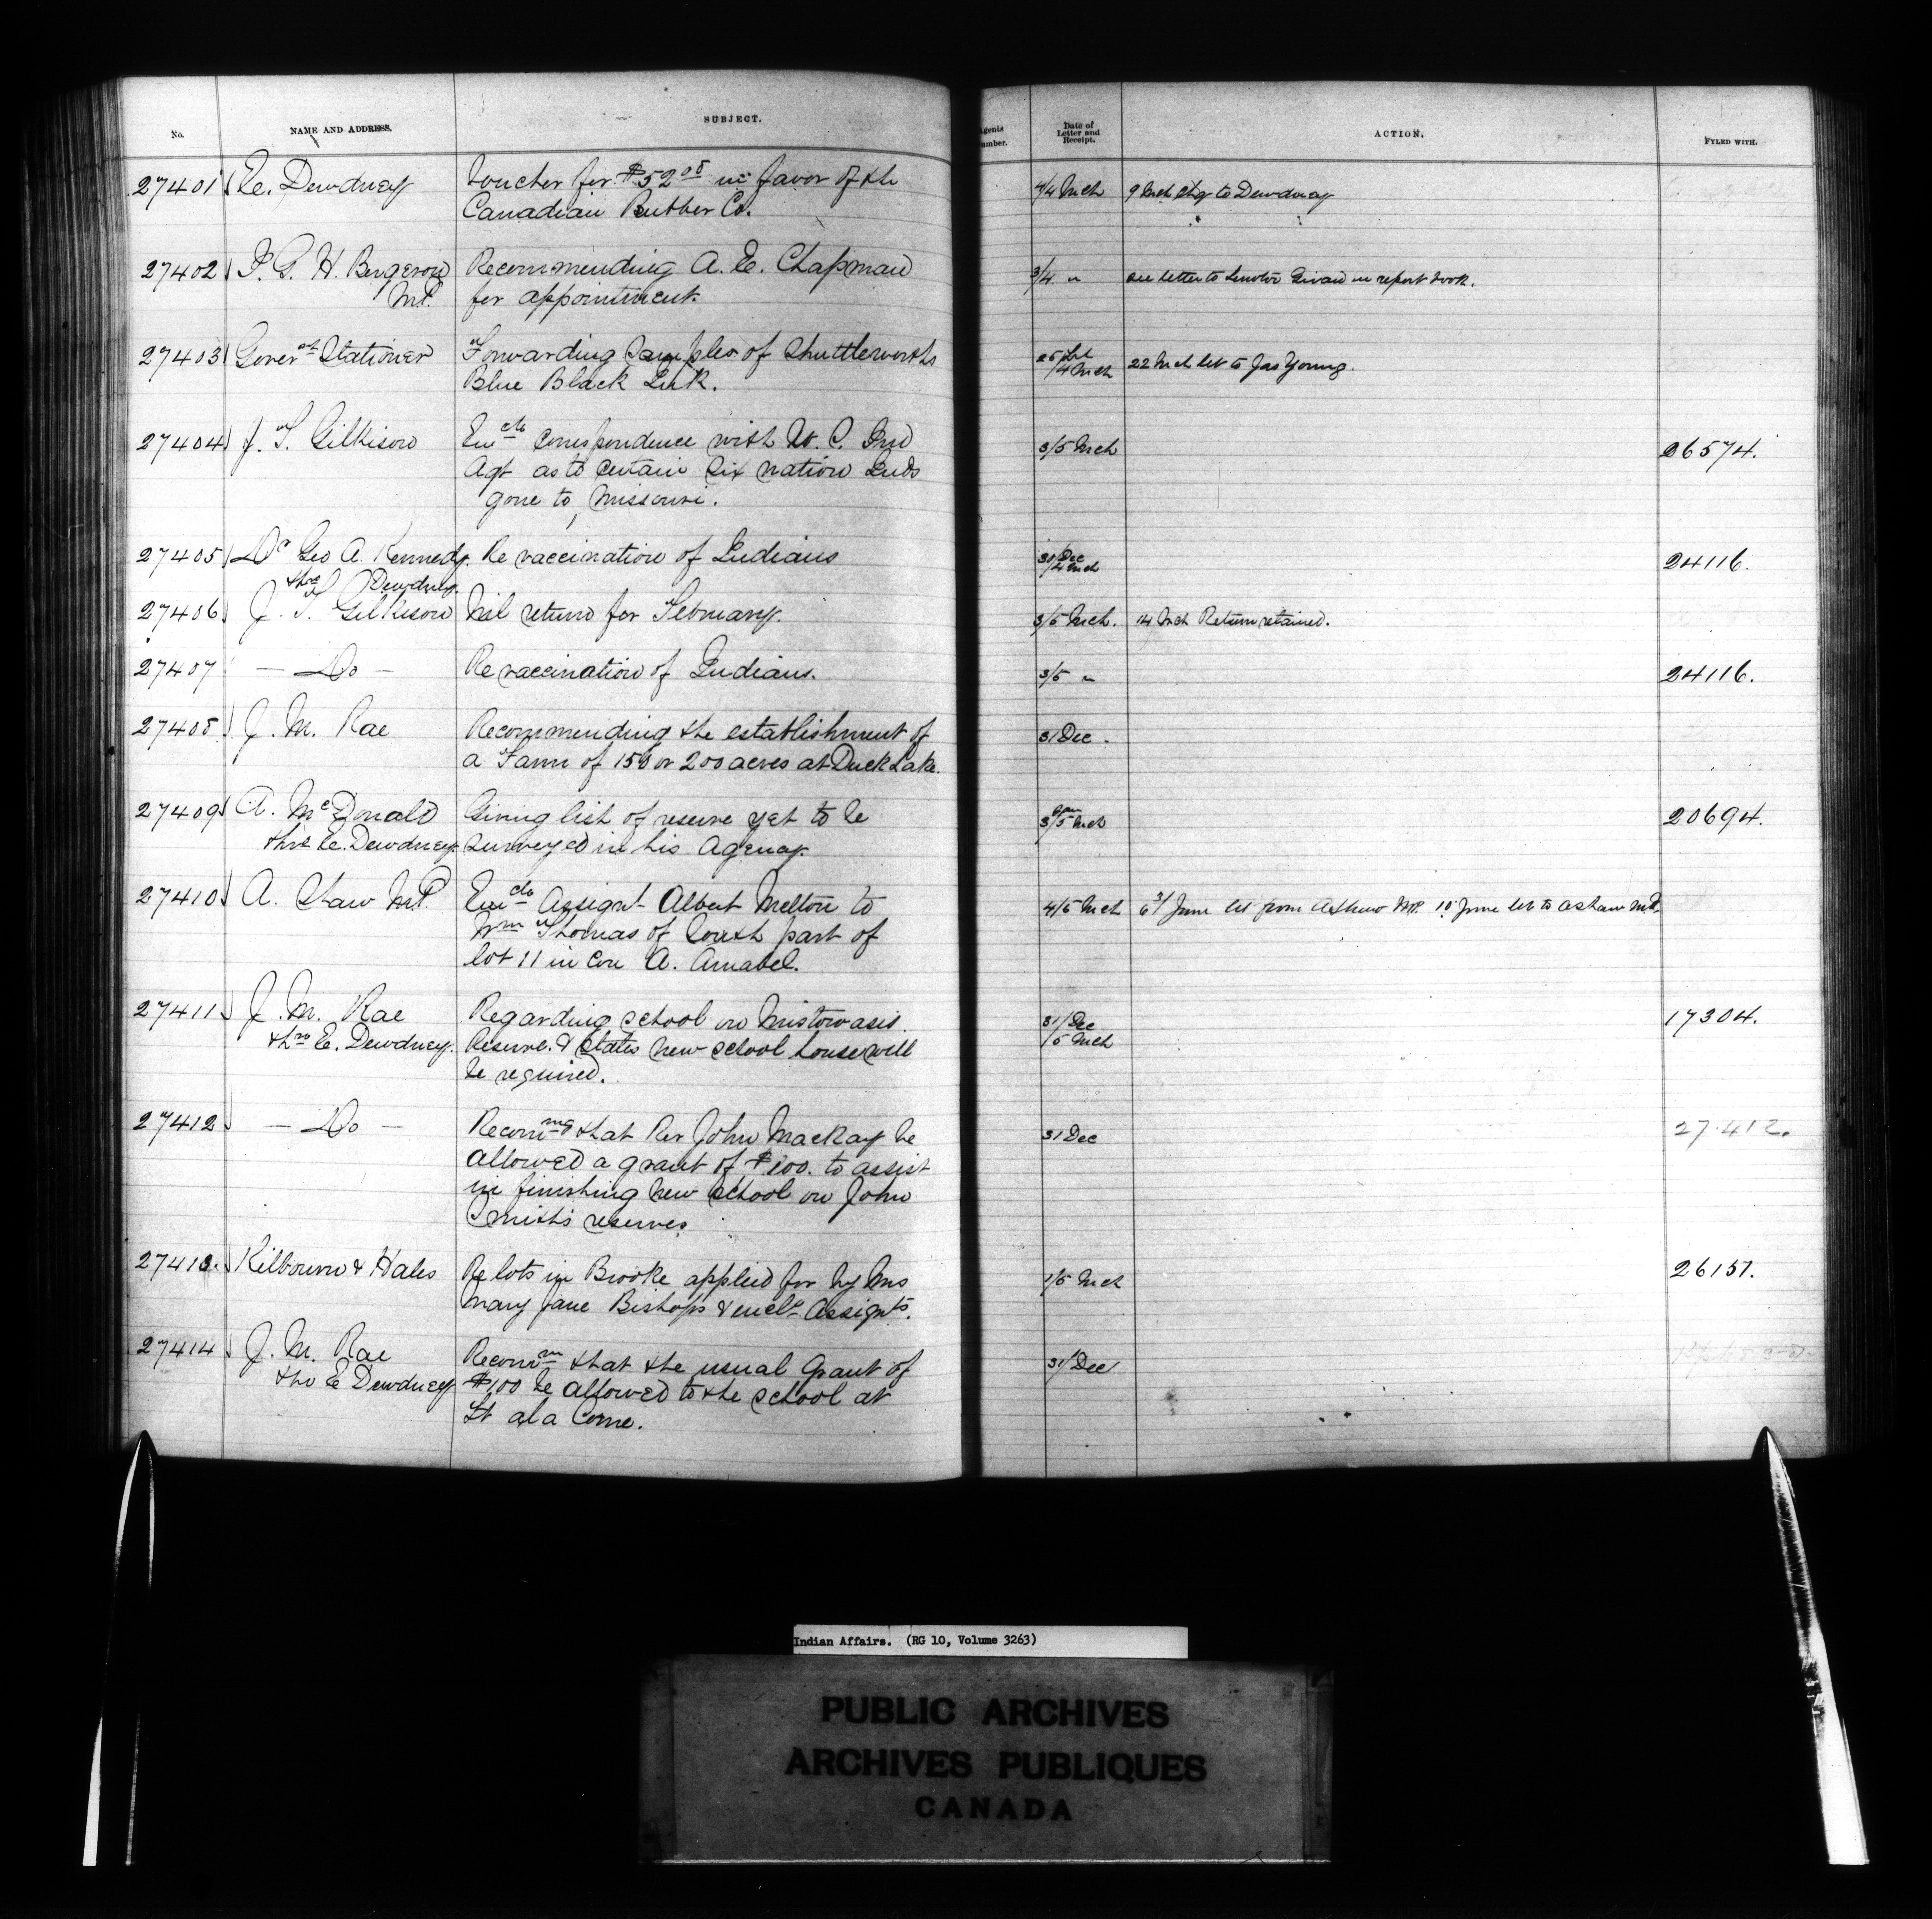 No. NAME AND ADDRESS. SUBJECT. Agents Number. Date of Letter and Receipt. ACTION. FYLED WITH.
27401 E. Dewdney Voucher for $52.05 in favor of the 4/4 Mch 9 Mch chq to Dewdney
Canadian Rubber Co.
27402 J. G. H. Bergeron Recommending A. E. Chapman 3/4 " see letter to Senator Girard in report book.
M.P. for appointment.
27403 Governt Stationer Forwarding Samples of Shuttleworths 22 Mch let to Jas Young.
Blue Black Ink. /4 Mch
27404 J. T. Gilkison Encls correspondence with U. S. Ind 3/5 Mch 26574.
Agt as to certain Six nation Inds
gone to Missouri.
27405 Dr Geo A. Kennedy. Re vaccination of Indians 31 Dec /4 Mch 24116.
thro Dewdney.
27406 J. T. Gilkison Nil return for February. 3/5 Mch. 14 Mch Return retained.
27407 — Do — Re vaccination of Indians. 3/5 " 24116.
27408 J. M. Rae Recommending the establishment of 31 Dec.
a Farm of 150 or 200 acres at Duck Lake.
27409 A. McDonald Giving list of reserve yet to be 3 Jan /5 Mch 20694.
thro E. Dewdney. surveyed in his Agency.
27410 A. Shaw M.P. Encls Assignt Albert Melton to 4/5 Mch 3/6 June let from A Shaw M.P. 10 June let to A Shaw M.P.
Wm Thomas of South part of
lot 11 in Con A. Amabel.
27411 J. M. Rae Regarding school on Mistowasis 31/Dec 17304.
thro E. Dewdney. Reserve. & states new school house will /5 Mch
be required.
27412 — Do — Recommg that Rev John Mackay be 31 Dec 27.412.
allowed a grant of $100. to assist
in finishing new school on John
Smith's reserves
27413. Kilbourn & Hales Re lots in Brooke applied for by Mrs 1/5 Mch 26157.
Mary Jane Bishop & encls Assignts.
27414 J. M. Rae Recomm that the usual Grant of 31/Dec
thro E Dewdney $100 be allowed to the school at
Ft a la Corne.
Indian Affairs. (RG 10, Volume 3263)
PUBLIC ARCHIVES
ARCHIVES PUBLIQUES
CANADA